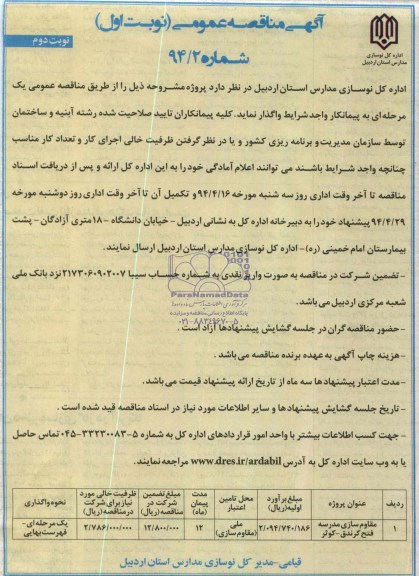 آگهی مناقصه عمومی (نوبت اول)
نوبت دوم
شماره ۹۴/۲
اداره کل نوسازی
مدارس استان اردبیل
اداره کل نوسازی مدارس استان اردبیل در نظر دارد پروژه مشروحه ذیل را از طریق مناقصه عمومی یک
مرحله‌ای به پیمانکار واجد شرایط واگذار نماید. کلیه پیمانکاران تایید صلاحیت شده رشته آبنیه و ساختمان
توسط سازمان مدیریت و برنامه ریزی کشور و یا در نظر گرفتن ظرفیت خالی اجرای کار و تعداد کار مناسب
چنانچه واجد شرایط باشند می توانند اعلام آمادگی خود را به این اداره کل ارائه و پس از دریافت اسناد
مناقصه تا آخر وقت اداری روز سه شنبه مورخه ۹۴/۴/۱۶ و تکمیل آن تا آخر وقت اداری روز دوشنبه مورخه
۹۴/۴/۲۹ پیشنهاد خود را به دبیرخانه اداره کل به نشانی اردبیل - خیابان دانشگاه - ۱۸متری آزادگان - پشت
بیمارستان امام خمینی (ره)- اداره کل نوسازی مدارس استان اردبیل ارسال نمایند.
- تضمین شرکت در مناقصه به صورت واریز نقدی به شماره حساب سیبا ۲۱۷۳۰۶۰۹۰۲۰۰۷ نزد بانک ملی
شعبه مرکزی اردبیل می باشد.
ParsNamadData
پایگاه اطلاع رسانی مناقصه و مزایده
۰۲۱-۸۸۳۴۹۶۷۰-۵
- حضور مناقصه گران در جلسه گشایش پیشنهادها آزاد است .
- هزینه چاپ آگهی به عهده برنده مناقصه می باشد .
- مدت اعتبار پیشنهادها سه ماه از تاریخ ارائه پیشنهاد قیمت می باشد.
- تاریخ جلسه گشایش پیشنهادها و سایر اطلاعات مورد نیاز در اسناد مناقصه قید شده است .
- جهت کسب اطلاعات بیشتر با واحد امور قراردادهای اداره کل به شماره ۵-۳۳۲۳۰۰۸۳-۰۴۵ تماس حاصل
یا به وب سایت اداره کل به آدرس www.dres.ir/ardabil مراجعه نمایند.
ردیف عنوان پروژه مبلغ برآورد اولیه(ریال) محل تامین اعتبار مدت پیمان (ماه) مبلغ تضمین شرکت در مناقصه(ریال) ظرفیت خالی مورد نیاز برای شرکت درمناقصه (ریال) نحوه واگذاری
۱ مقاوم سازی مدرسه فتح کرندق -کوثر ۲/۰۹۴/۷۴۰/۱۸۶ ملی (مقاوم سازی) ۱۲ ۱۲/۸۰۰/۰۰۰ ۲/۷۸۶/۰۰۰/۰۰۰ یک مرحله ای - فهرست بهایی
قیامی-مدیر کل نوسازی مدارس استان اردبیل